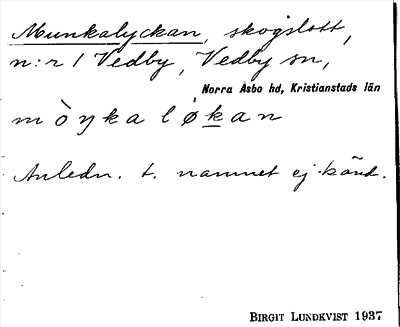 Munkalyckan, skogslott,
n:r 1 Vedby, Vedby sn,
Norra Åsbo hd, Kristianstads län
mòŋkaløkan
Anledn. t. namnet ej känd.
BIRGIT LUNDKVIST 1937